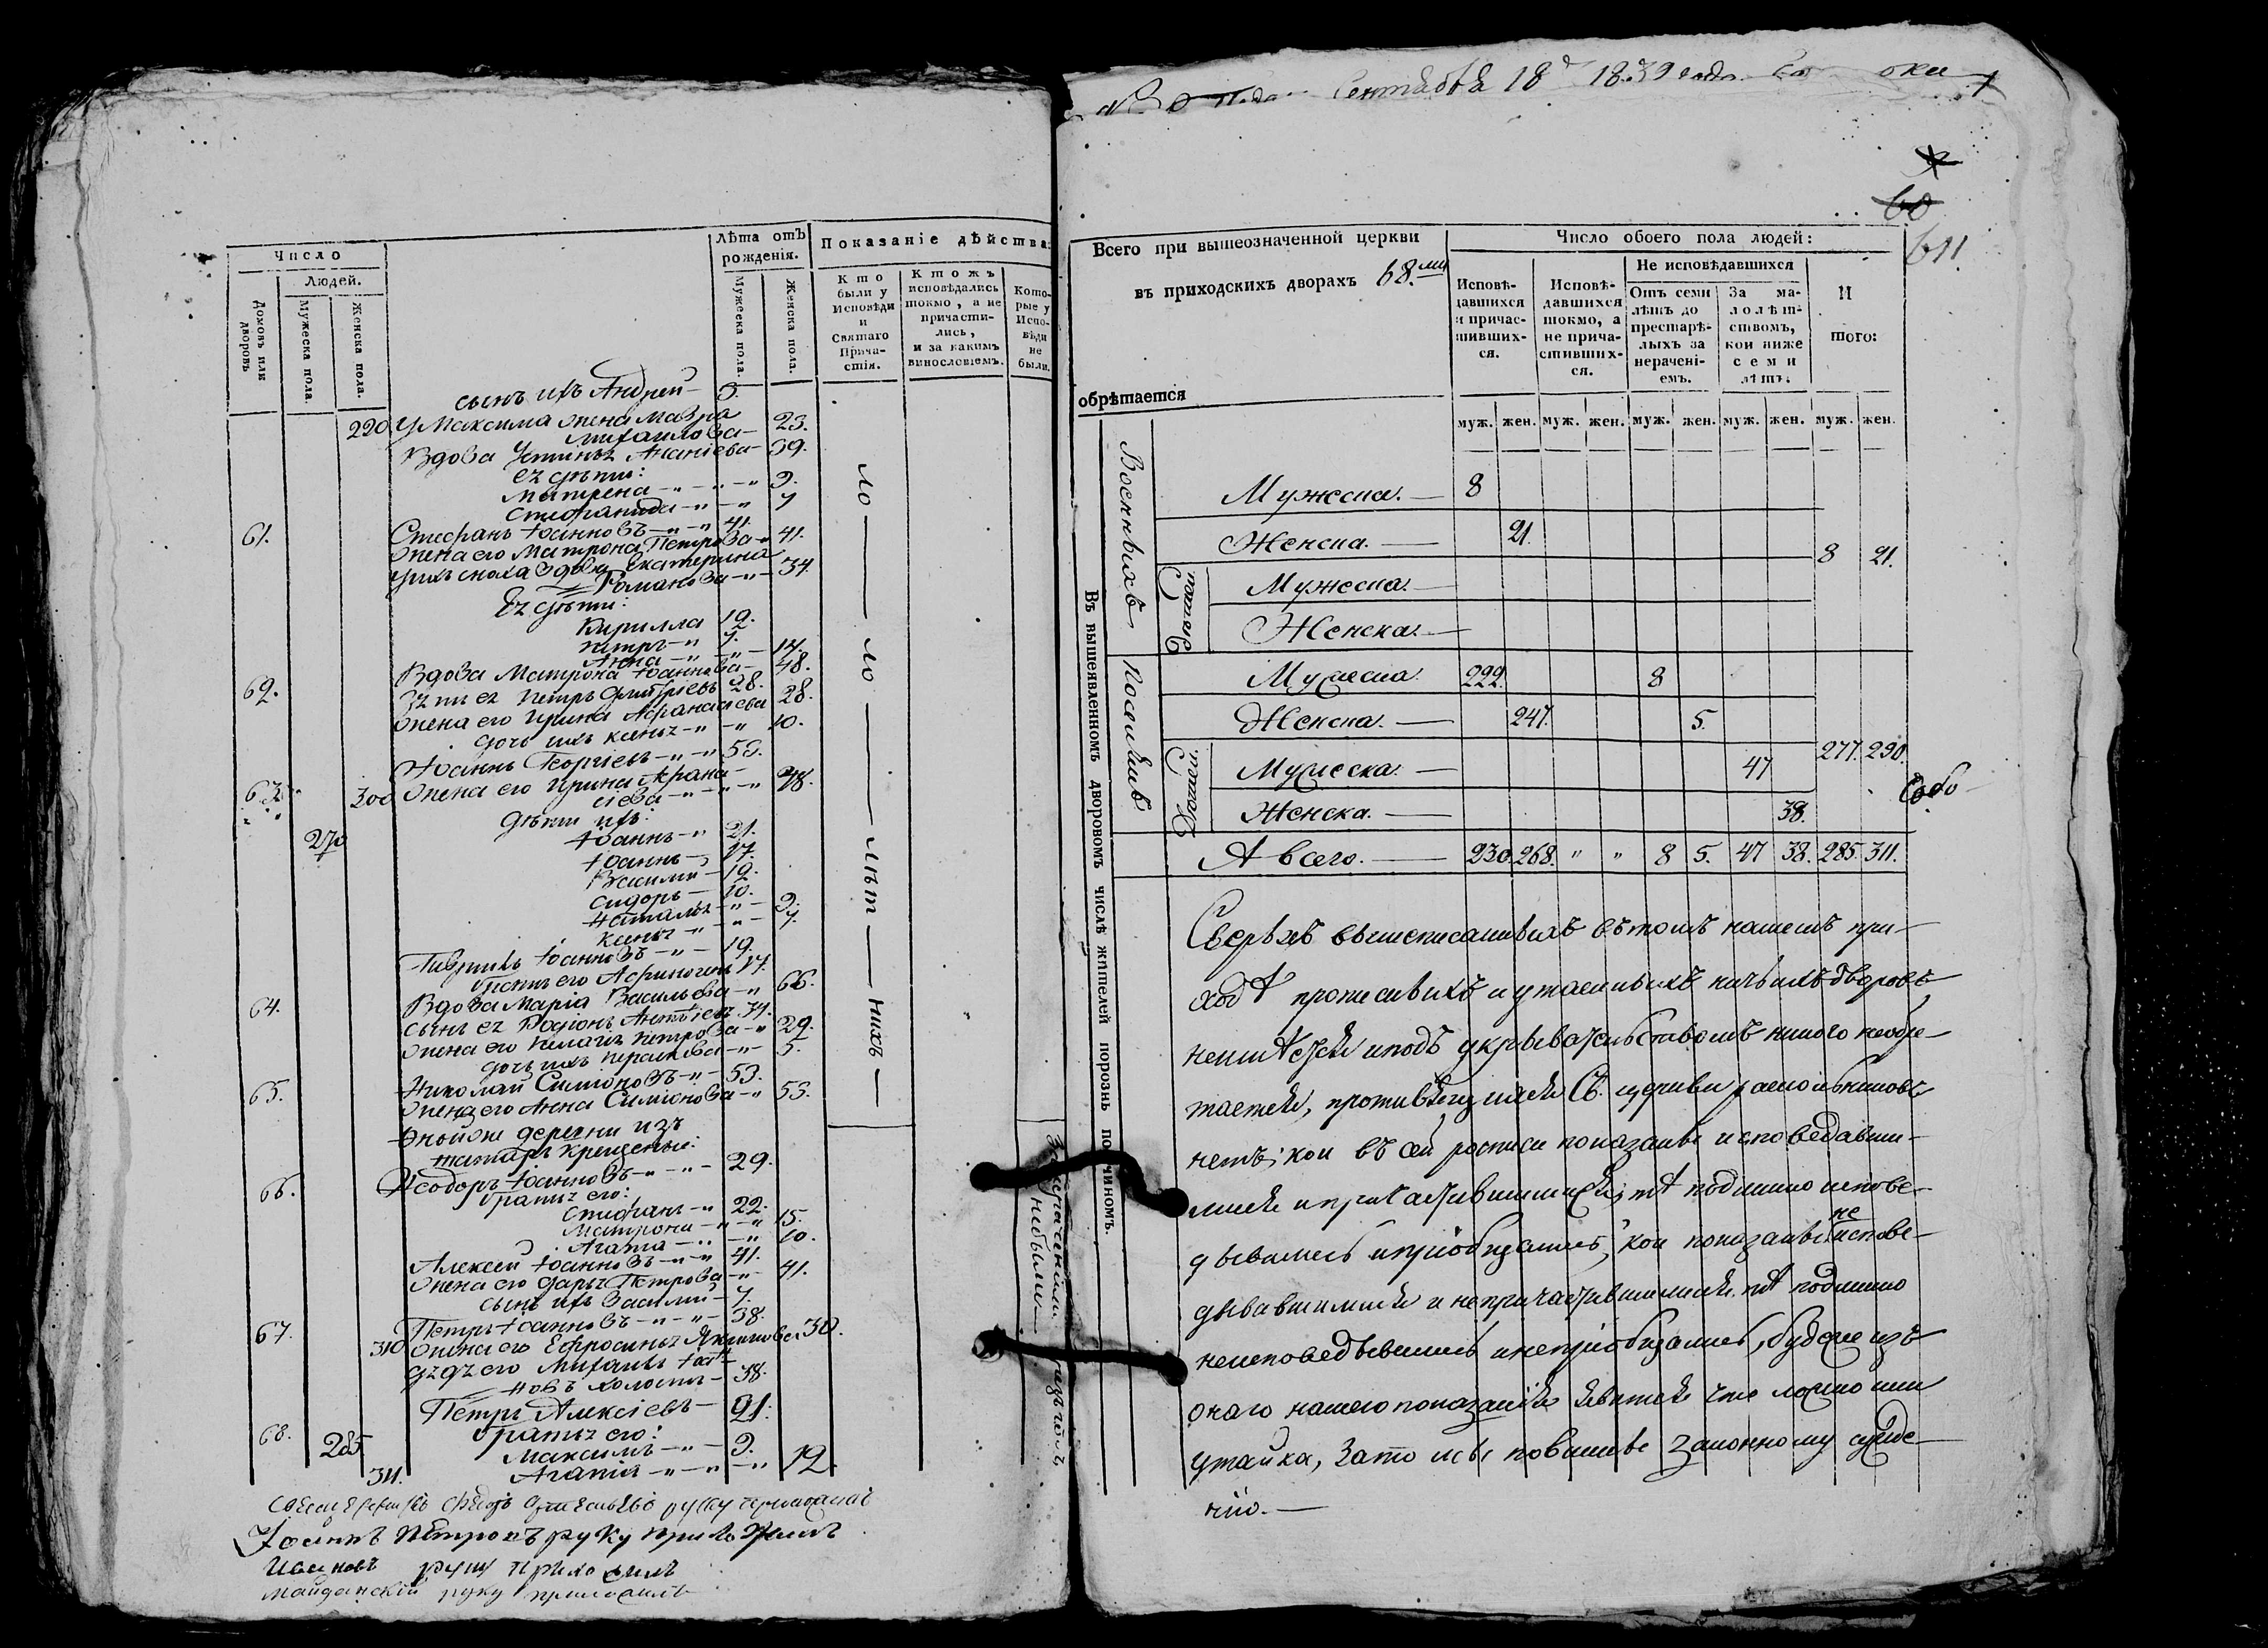 Число
Людей.
Домовъ или дворовъ
Мужеска пола.
Женска пола.
Лѣта отъ рожденія.
Мужеска пола.
Женска пола.
Показаніе дѣйства.
Кто были у Исповѣди и Святаго Причастія.
Ктожъ исповѣдались токмо, а не причастились, и за какимъ винословіемъ.
Которые у Исповѣди не были.
сынъ ихъ Андрей 3.
220 У Максима жена Мавра
Михаилова 23.
Вдова Устинья Ананіева 39.
ея дѣти:
Матрена 9.
Стефанида 7
61. Стефанъ Іоанновъ 41.
Жена его Матрона Петрова 41.
у ихъ сноха вдова Екатерина
Романова 34.
Ея дѣти:
Кирилла 12.
Петръ 7.
Анна 14.
62. Вдова Матрона Іоаннова 48.
Зять ея Петръ Димитріевъ 28.
Жена его Ирина Афанасіева 28.
дочь ихъ Ксенья 10.
63. Іоаннъ Георгіевъ 53.
300 Жена его Ирина Афана-
сіева 48.
Дѣти ихъ:
270 Іоаннъ 21.
Іоаннъ 17.
Василій 12.
Сидоръ 10.
Наталья 9.
Ксенья 7.
Гавриилъ Іоанновъ 19.
братъ его 17.
64. Вдова Марія Васильева 66.
Сынъ ея Родіонъ 34.
Жена его Пелагія Петрова 29.
дочь ихъ 5.
65. Николай Симіоновъ 53.
Жена его Анна Симіонова 53.
Оной же деревни изъ
татаръ крещеныи:
66. Ѳеодоръ Іоанновъ 29.
братья его:
Стефанъ 22.
Матрона 15.
Агафа 10.
Алексей Іоанновъ 41.
Жена его Дарья Петрова 41.
сынъ ихъ Василій 7.
67. Петръ Іоанновъ 38.
310 Жена его Ефросинья 30.
дядя его Михаилъ Іоан-
новъ холостъ 38.
68. Петръ Алексіевъ 21.
братья его:
285 Максимъ 9.
311. Агафія 12.
Іоаннъ Петровъ руку приложилъ
Ивановъ руку приложилъ
Майданскій руку приложилъ
не были
Сентября 18 д 1839 года
60
611
Всего при вышеозначенной церкви
въ приходскихъ дворахъ 68.ми
обрѣтается
Число обоего пола людей:
Исповѣдавшихся и причастившихся.
Исповѣдавшихся токмо, а не причастившихся.
Не исповѣдавшихся
Отъ семи лѣтъ до престарѣлыхъ за нераченіемъ.
За малолѣтствомъ, кои ниже семи лѣтъ.
И того:
муж. жен. муж. жен. муж. жен. муж. жен. муж. жен.
Въ вышеявленномъ дворовомъ числѣ жителей порознь по чиномъ.
Военныхъ
Мужеска. 8
Женска. 21.
8 21.
Дѣтей
Мужеска.
Женска.
Мужеска 222. 8
Женска. 247. 5.
277. 290.
Мужеска. 47
Женска. 38.
А всего. 230. 268. " " 8 5. 47 38. 285. 311.
Сверьхъ вышеписанныхъ въ томъ нашемъ при-
ходѣ прописныхъ и утаенныхъ ничьихъ дворовъ
неимѣется и подъ укрывательствомъ никого необре-
тается, противящихся Св. церкви раскольниковъ
нетъ; кои въ сей росписи показаны исповедавши-
мися и причастившимися, тѣ подлинно испове-
дывались и пріобщались, кои показаны не испове-
дывавшимися и непричастившимися, тѣ подлинно
неисповедывались и непріобщались, буде же изъ
онаго нашего показанія явится что ложно или
утайка, за то мы повинны законному сужде-
нію.